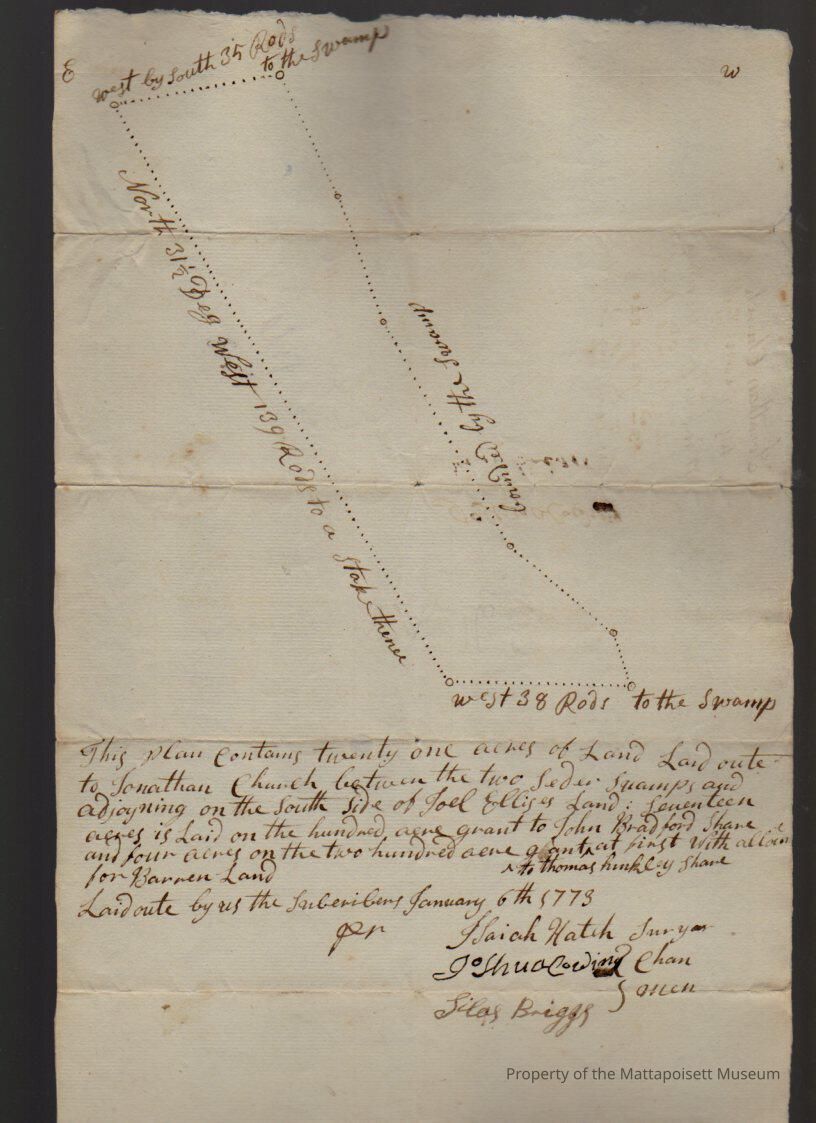 E
W
West by South 35 Rods
to the Swamp
North 31½ Deg West 139 Rods to a Stake thence
bounded by the Swamp
West 38 Rods to the Swamp
This plan Contains twenty one acres of Land Laid oute
to Jonathan Church between the two Seder Swamps and
adjoyning on the South Side of Joel Ellises Land: Seventeen
acres is Laid on the hundred acre grant to John Bradford Share
and four acres on the two hundred acre grant ^ at first with
^ to thomas hinkley Share
for Barren Land
Laid oute by us the Subcribers January 6th 1773
per
Isaiah Hatch Survyer
Joshua Cowing } Chan
} men
Silas Briggs
Property of the Mattapoisett Museum